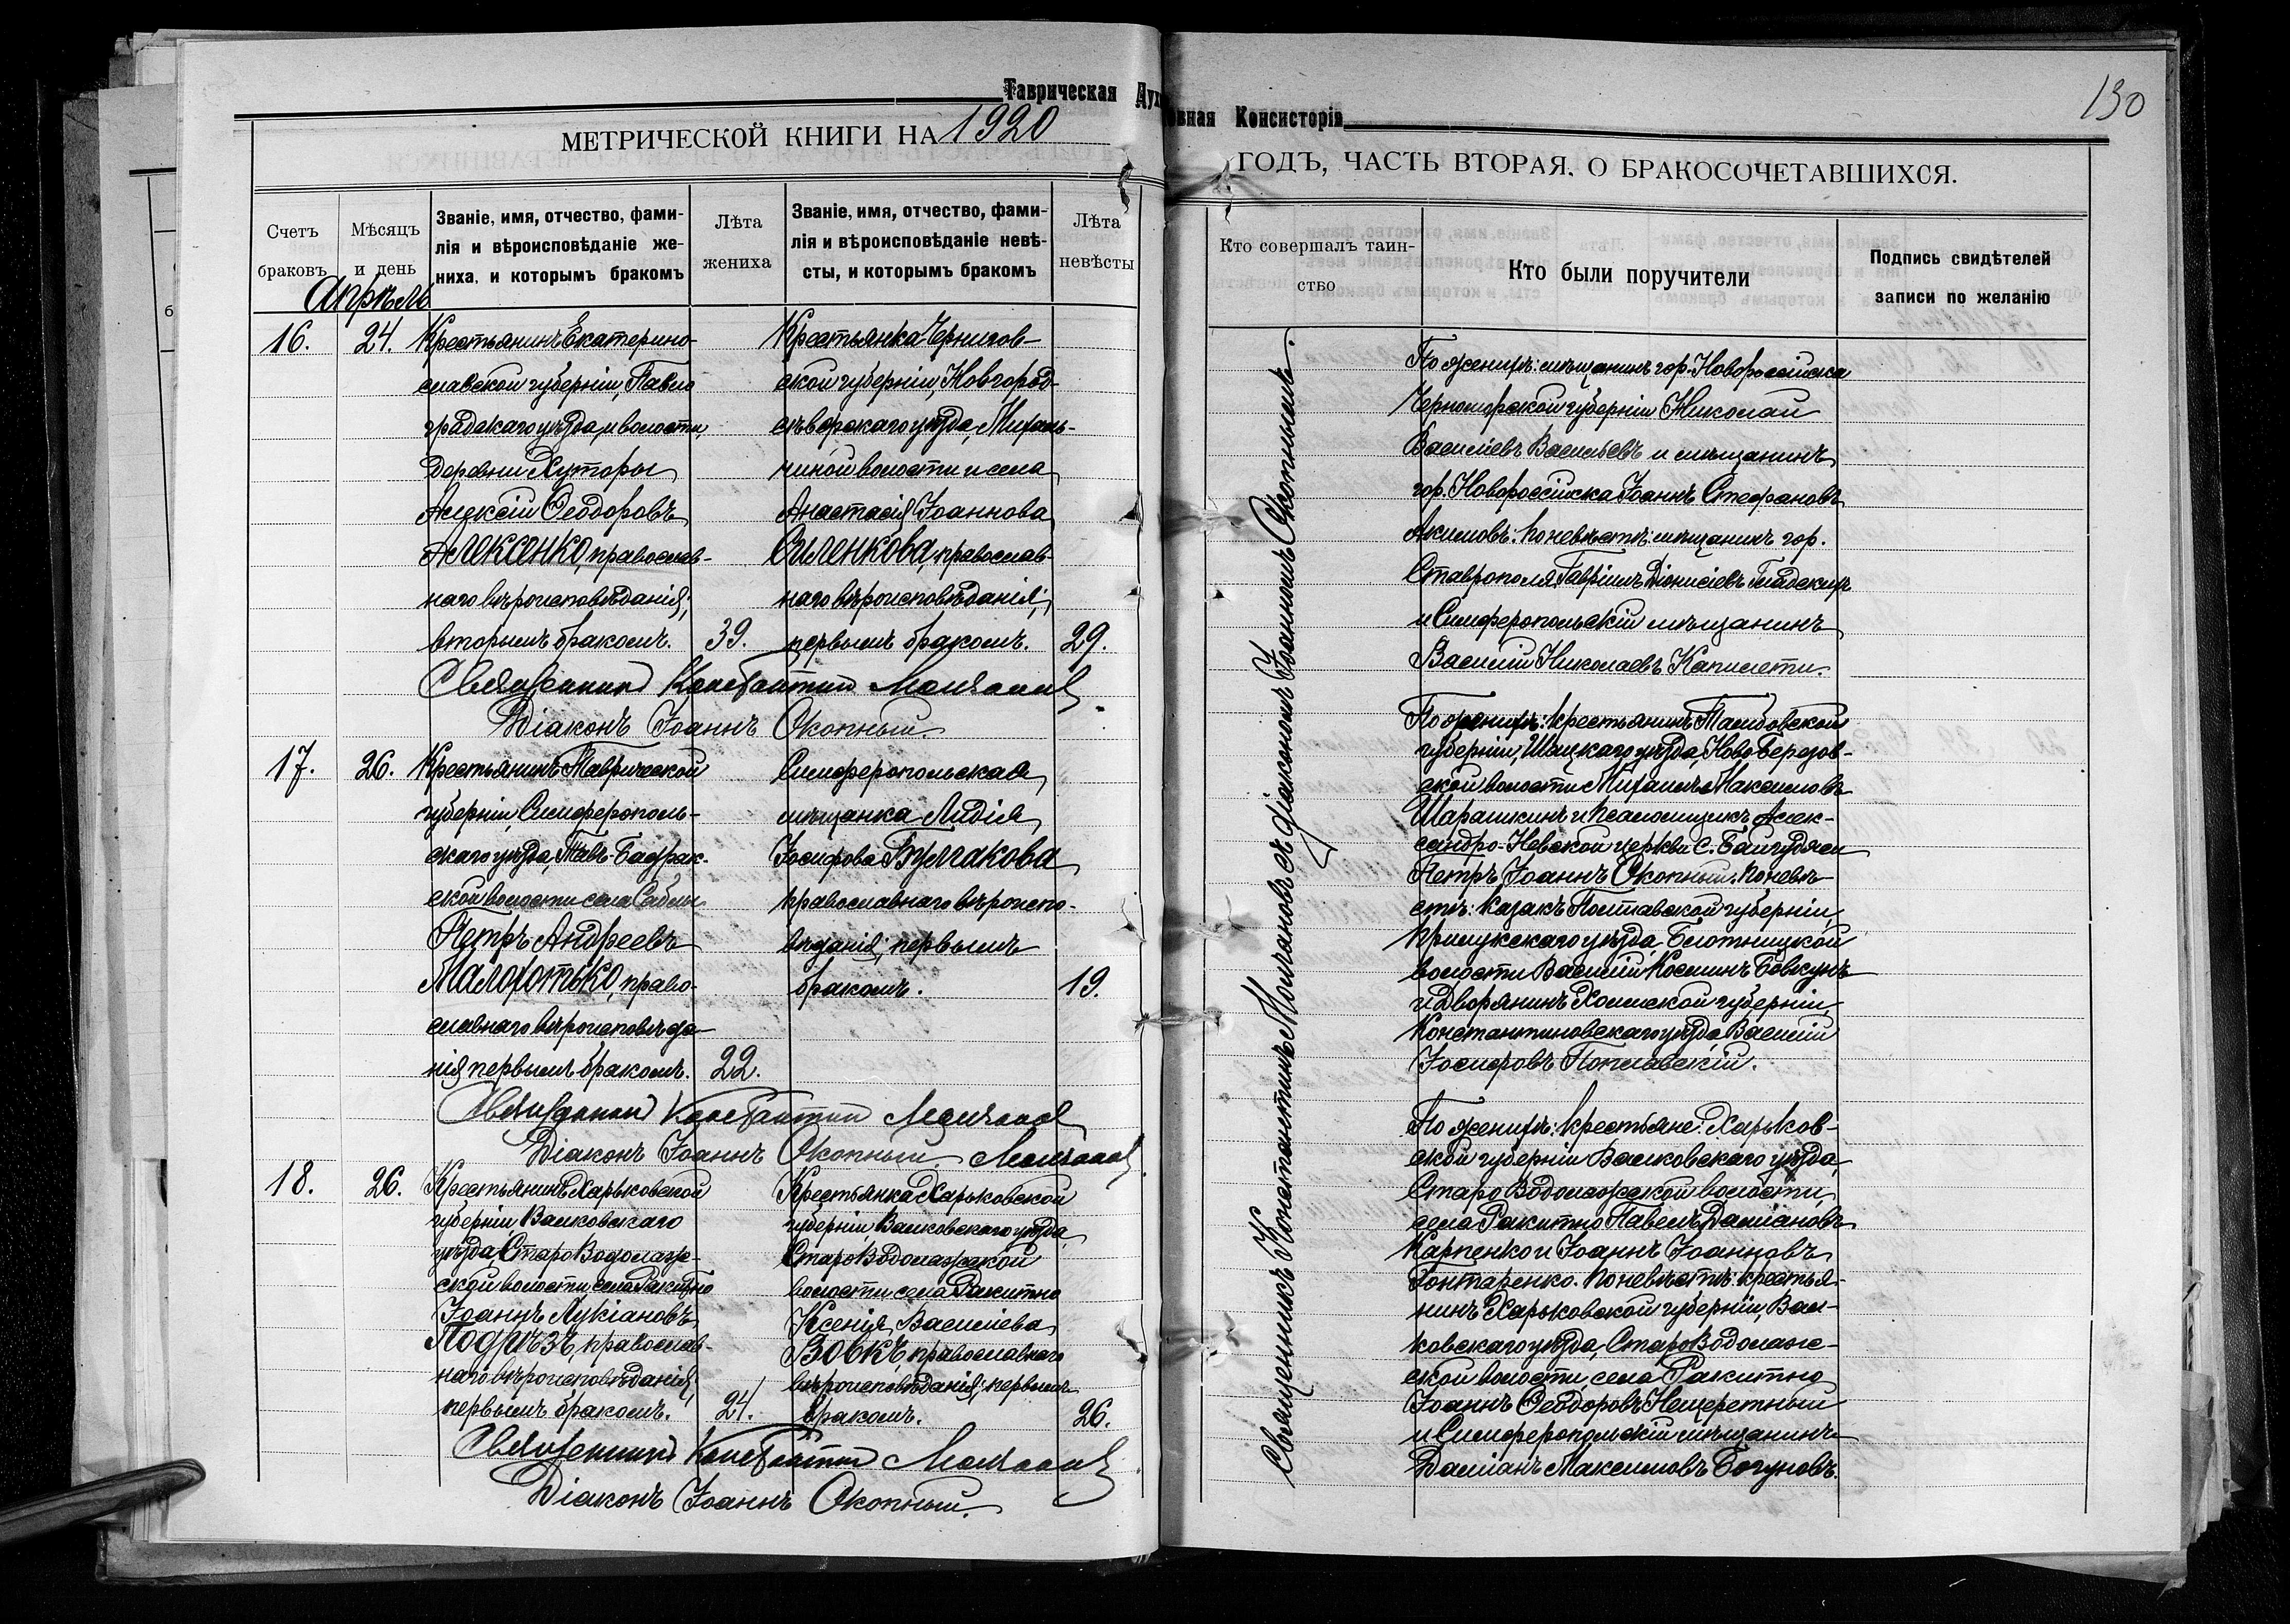 Таврическая Духовная Консисторія
130
МЕТРИЧЕСКОЙ КНИГИ НА 1920
ГОДЪ, ЧАСТЬ ВТОРАЯ, О БРАКОСОЧЕТАВШИХСЯ.
Счетъ браковъ
Мѣсяцъ и день
Званіе, имя, отчество, фами-
лія и вѣроисповѣданіе же-
ниха, и которымъ бракомъ
Лѣта
жениха
Званіе, имя, отчество, фами-
лія и вѣроисповѣданіе невѣ-
сты, и которымъ бракомъ
Лѣта
невѣсты
Кто совершалъ таин-
ство
Кто были поручители
Подпись свидѣтелей
записи по желанію
Апрѣль
16.
24.
Крестьянинъ Екатерино-
славской губерніи, Павло
градскаго уѣзда, и волости,
деревни Хуторы
Алексій Ѳеодоровъ
Алексенко, православ-
наго вѣроисповѣданія;
вторымъ бракомъ.
39.
Крестьянка Чернигов-
ской губерніи, Новгород-
сѣверскаго уѣзда,
волости и села
Анастасія Іоаннова
Силенкова, православ-
наго вѣроисповѣданія;
первымъ бракомъ.
29.
Священникъ Константинъ Молчановъ
Діаконъ Іоаннъ Окопный
17.
26.
Крестьянинъ Таврической
губерніи, Симферополь-
скаго уѣзда, Тавъ-Бадрак-
ской волости села Саблы
Петръ Андреевъ
Малохотько, право-
славнаго вѣроисповѣда-
нія первымъ бракомъ.
22.
Симферопольская
мѣщанка Лидія
Іосифова Булгакова
православнаго вѣроиспо-
вѣданія; первымъ
бракомъ.
19.
Священникъ Константинъ Молчановъ
Діаконъ Іоаннъ Окопный. Молчановъ
18.
26.
Крестьянинъ Харьковской
губерніи Валковскаго
уѣзда, Старо Водолаж-
ской волости, села Ракитно
Іоаннъ Лукіановъ
Подрѣзъ, православ-
наго вѣроисповѣданія,
первымъ бракомъ.
24.
Крестьянка Харьковской
губерніи, Валковскаго уѣзда
Старо Водолажской
волости села Ракитно
Ксенія Василіева
Вовкъ православнаго
вѣроисповѣданія; первымъ
бракомъ.
26.
Священникъ Константинъ Молчановъ
Діаконъ Іоаннъ Окопный.
Священникъ Константинъ Молчановъ съ діакономъ Іоанномъ Окопнымъ.
По женихѣ: мѣщанинъ гор. Новороссійска
Черноморской губерніи Николай
Василіевъ Васильевъ и мѣщанинъ
гор. Новороссійска Іоаннъ Стефановъ
Акимовъ: по невѣстѣ: мѣщанинъ гор.
Ставрополя Гавріилъ Діонисіевъ
и Симферопольскій мѣщанинъ
Василій Николаевъ Капилети.
По женихѣ: крестьянинъ Тамбовской
губерніи, Шацкаго уѣзда, Ново Березов-
ской волости Михаилъ Максимовъ
Шарашкинъ и псаломщикъ Алек-
сандро-Невской церкви с.
Петръ Іоаннъ Окопный. по невѣ-
стѣ: казакъ Полтавской губерніи,
Прилукскаго уѣзда
волости Василій Косминъ Бовкунъ
и Дворянинъ Холмской губерніи,
Константиновскаго уѣзда Василій
Іосифовъ Поплавскій.
По женихѣ: крестьяне: Харьков-
ской губерніи Валковскаго уѣзда,
Старо Водолажской волости,
села Ракитно Павелъ Даміановъ
Карпенко и Іоаннъ Іоанновъ
Гонтаренко. по невѣстѣ: крестья-
нинъ Харьковской губерніи, Вал-
ковскаго уѣзда, Старо Водолаж-
ской волости, села Ракитно
Іоаннъ Ѳеодоровъ Нещеретный
и Симферопольскій мѣщанинъ
Даміанъ Максимовъ Богуновъ.